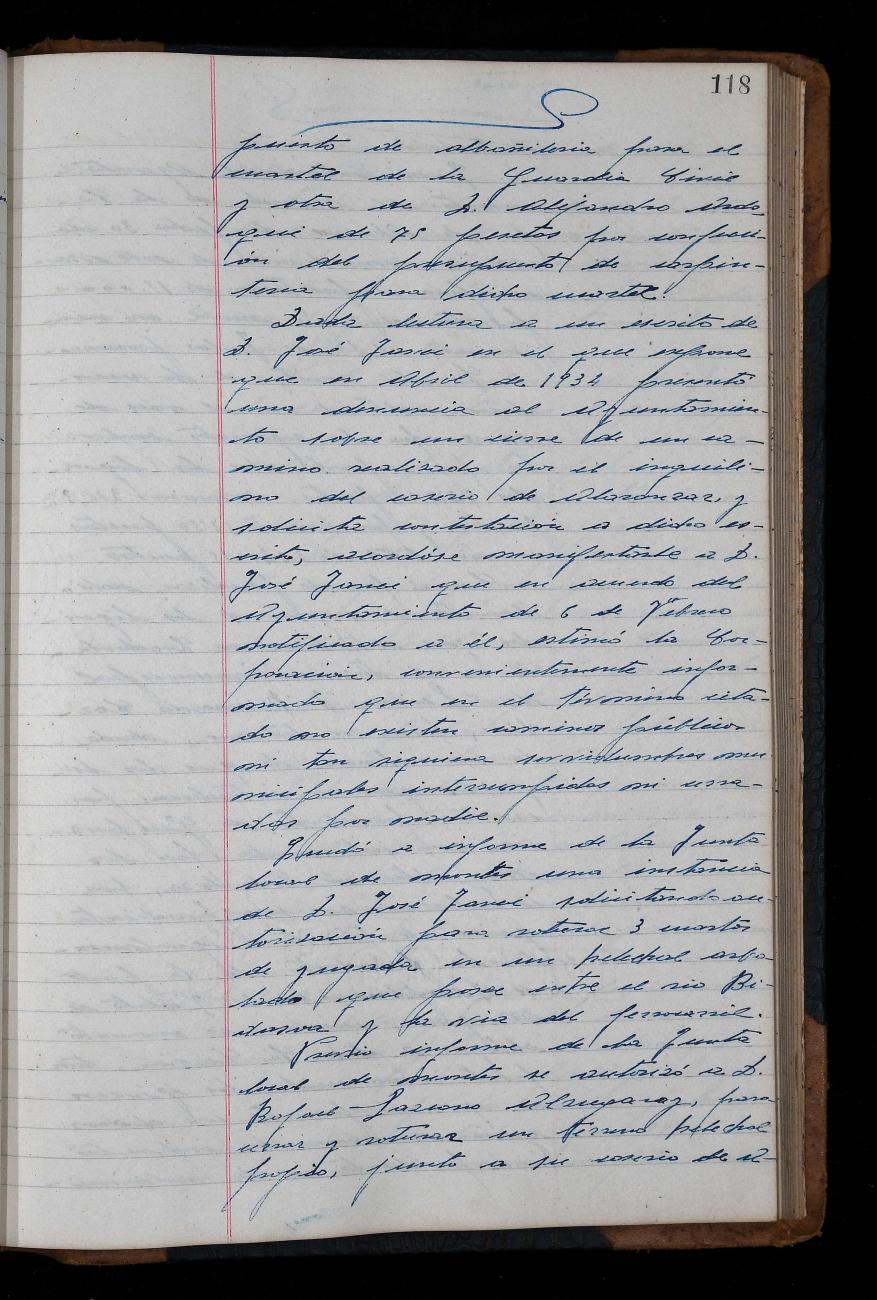 118
puesto de albañileria para el
cuartel de la Guardia Civil
y otra de D. Alejandro Ordo-
qui de 75 pesetas por confecci-
ón del presupuesto de carpin-
teria para dicho cuartel.
Dada lectura a un escrito de
D. José Jauri en el que expone
que en Abril de 1934 presentó
una denuncia al Ayuntamien-
to sobre un cierre de un ca-
mino realizado por el inquili-
no del caserio de y
solicita contestación a dicho es-
crito, acordóse manifestarle a D.
José Jauri que en acuerdo del
Ayuntamiento de 6 de Febrero
notificado a él, estimó la Cor-
poración, convenientemente infor-
mado que en el término cita-
do no existen caminos públicos
ni tan siquiera servidumbres mu
nicipales interrumpidas ni cerra-
das por nadie.
Quedó a informe de la Junta
local de montes una instancia
de D. José Jauri solicitando au-
torización para roturar 3 cuartos
de yugada en un helechal arbo
lado que posee entre el rio Bi-
dasoa y la via del ferrocarril.
Previo informe de la Junta
local de montes se autorizó a D.
Rafael Lazcano para
cerrar y roturar un terreno helechal
propio, junto a su caserio de A-